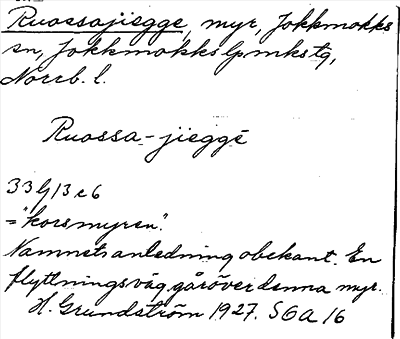 Ruossajiegge, myr, Jokkmokks
sn, Jokkmokks lpmkstg,
Norrb. l.
Ruossa-jieggē
33 G/13 c 6
="korsmyren".
Namnets anledning obekant. En
flyttningsväg går över denna myr.
H. Grundström 1927. SOA 16